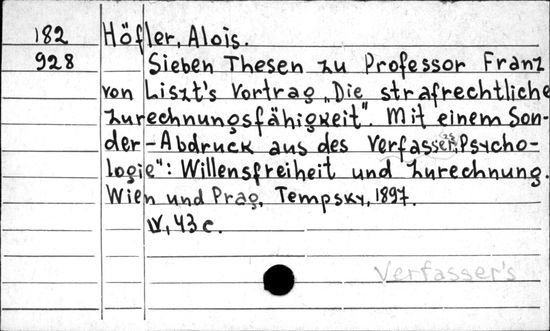 182 Höfler, Alois.
928 Sieben Thesen zu Professor Franz
von Liszt's Vortrag „Die strafrechtliche
Zurechnungsfähigkeit". Mit einem Son-
der-Abdruck aus des Verfassers „Psycho-
logie": Willensfreiheit und Zurechnung.
Wien und Prag, Tempsky, 1897.
IV, 43 c.
Verfasser's